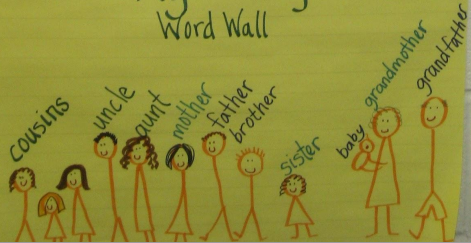 Word Wall
cousins
uncle
aunt
mother
father
brother
sister
baby
grandmother
grandfather